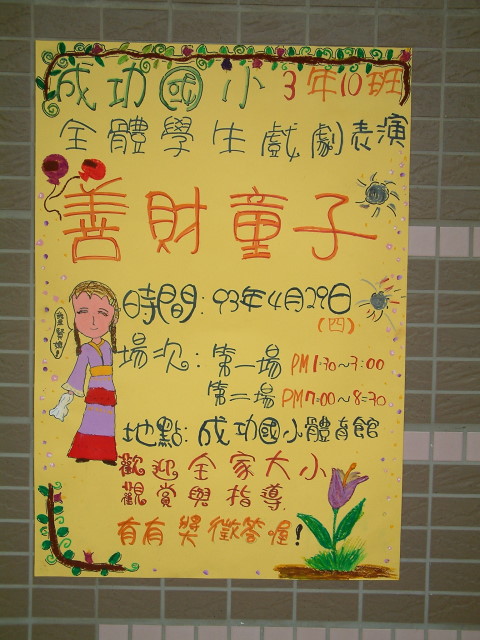 成功國小 3年10班
全體學生戲劇表演
善財童子
時間:93年4月29日
(四)
場次:第一場 PM1:30~3:00
第二場 PM7:00~8:30
地點:成功國小體育館
歡迎全家大小
觀賞與指導
有有獎徵答喔!